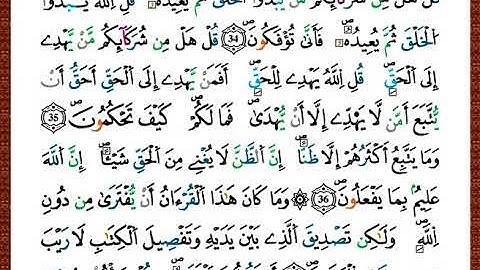 قُلْ هَلْ مِن شُرَكَآئِكُم مَّن يَبْدَؤُا۟
الْخَلْقَ ثُمَّ يُعِيدُهُۥ ۖ فَأَنَّىٰ تُؤْفَكُونَ ۝٣٤ قُلْ هَلْ مِن شُرَكَآئِكُم مَّن يَهْدِىٓ
إِلَى الْحَقِّ ۚ قُلِ اللَّهُ يَهْدِى لِلْحَقِّ ۗ أَفَمَن يَهْدِىٓ إِلَى الْحَقِّ أَحَقُّ أَن
يُتَّبَعَ أَمَّن لَّا يَهِدِّىٓ إِلَّآ أَن يُهْدَىٰ ۖ فَمَا لَكُمْ ۖ كَيْفَ تَحْكُمُونَ ۝٣٥
وَمَا يَتَّبِعُ أَكْثَرُهُمْ إِلَّا ظَنًّا ۚ إِنَّ الظَّنَّ لَا يُغْنِى مِنَ الْحَقِّ شَيْـًٔا ۚ إِنَّ اللَّهَ
عَلِيمٌۢ بِمَا يَفْعَلُونَ ۝٣٦ ۞ وَمَا كَانَ هَٰذَا الْقُرْءَانُ أَن يُفْتَرَىٰ مِن دُونِ
اللَّهِ ۖ وَلَٰكِن تَصْدِيقَ الَّذِى بَيْنَ يَدَيْهِ وَتَفْصِيلَ الْكِتَٰبِ لَا رَيْبَ